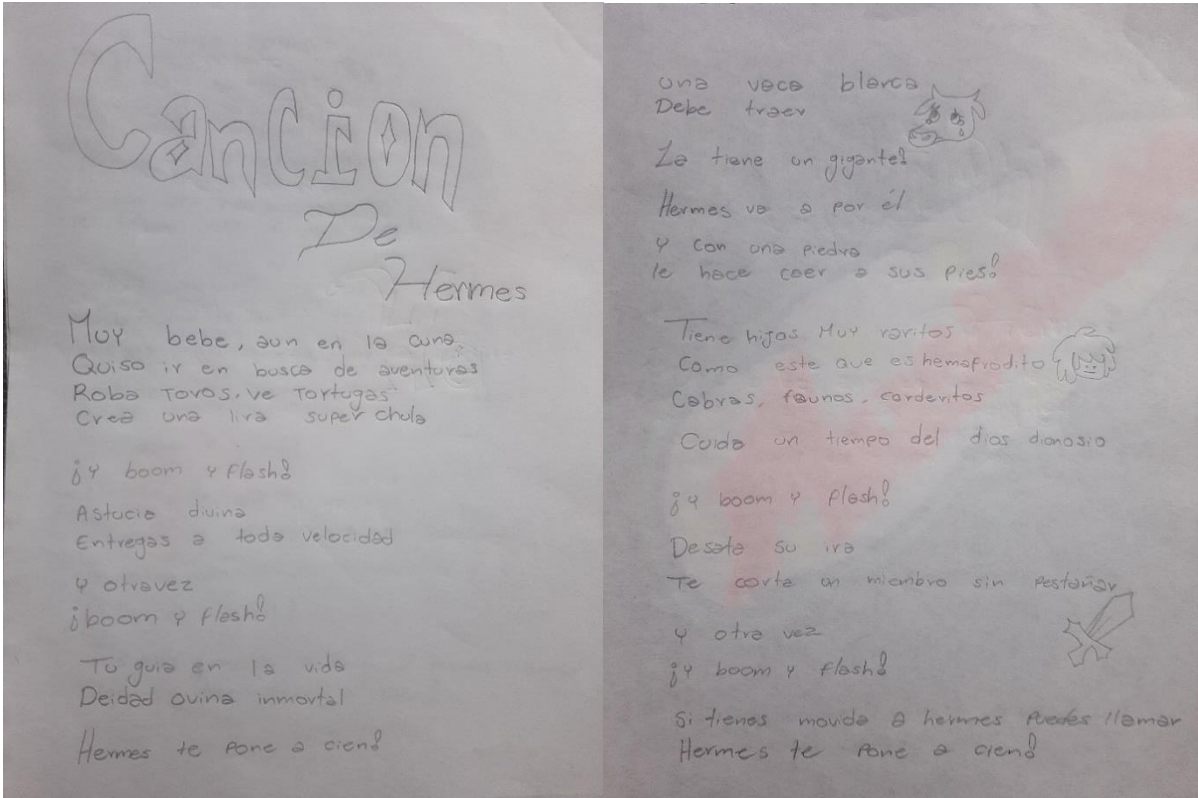 Cancion
De
Hermes
Muy bebe, aun en la cuna.
Quiso ir en busca de aventuras
Roba Toros. ve Tortugas
Crea una lira super chula
¡Y boom y flash!
Astucia divina
Entregas a toda velocidad
Y otravez
¡boom y flash!
Tu guia en la vida
Deidad ovina inmortal
Hermes te pone a cien!
una vaca blanca
Debe traer
La tiene un gigante!
Hermes va a por él
Y con una piedra
le hace caer a sus pies!
Tiene hijos Muy raritos
Como este que es hemafrodito
Cabras, faunos, corderitos
Cuida un tiempo del dios dionosio
¡Y boom y flash!
Desata su ira
Te corta un miembro sin pestañar
Y otra vez
¡Y boom y flash!
Si tienes movida a hermes puedes llamar
Hermes te pone a cien!